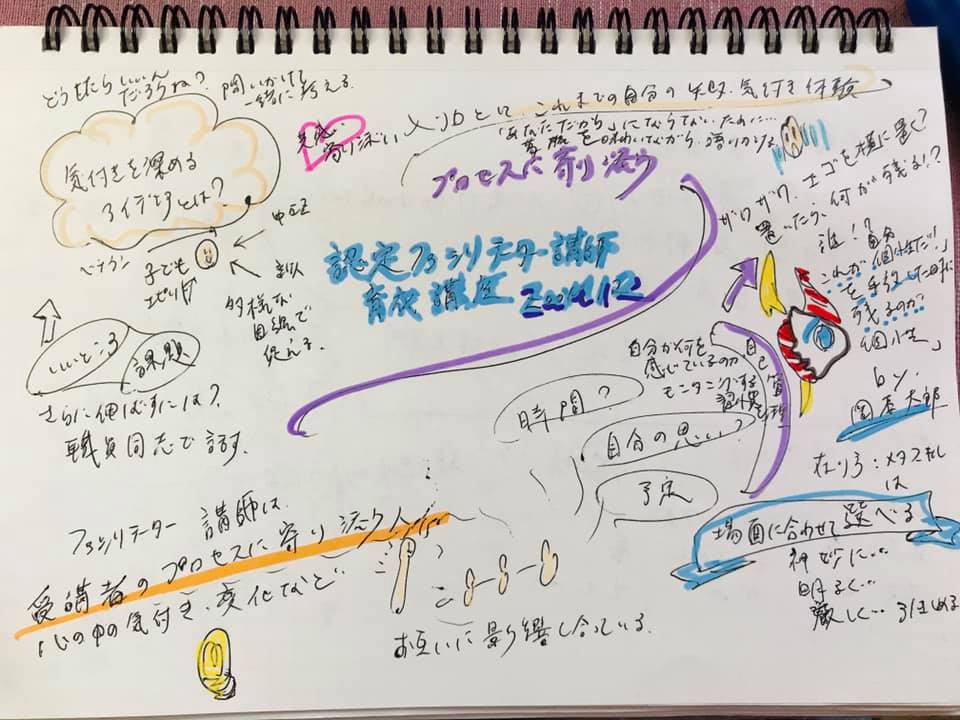 どうしたらいいん
だろうね?
問いかけて
一緒に考える。
気付きを深める
アイデアとは?
ベテラン
子ども
エピソード
中立
新人
多様な
目線で
伝える。
いいところ
課題
さらに伸ばすには?
職員同志で話す。
共感
寄り添い
これまでの自分の失敗、気付き体験
「あなただから」にならないために…
プロセスに寄り添う
認定ファシリテーター講師
育成講座 Zoom
エゴを横に置く?
置いたら、何が残る!?
これが自分
個性だ!
を手放した時に
残るのが
個性」
by.
岡本太郎
自分が何を
感じているのか
モニタリングする
習慣
自己管理
時間?
自分の思い?
予定
在り方:
は
場面に合わせて選べる
神妙に…
明るく…
厳しく…
ファシリテーター 講師は
受講者のプロセスに寄り添う人
心の中の気付き、変化など
お互いに影響し合っている。